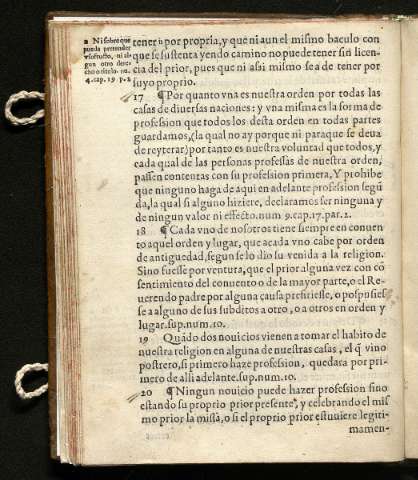 2 Ni sobre que
pueda pretender
vsofructo, ni al
gun otro dere-
cho o titulo. nu.
4. cap. 19 p. 2
tener ǹ por propria, y que ni aun el mismo baculo con
que se sustenta yendo camino no puede tener sin licen-
cia del prior, pues que ni assi mismo se a de tener por
suyo proprio.
17 ¶ Por quanto vna es nuestra orden por todas las
casas de diuersas naciones: y vna misma es la forma de
profession que todos los desta orden en todas partes
guardamos, (la qual no ay porque ni paraque se deua
de reyterar) por tanto es nuestra voluntad que todos, y
cada qual de las personas professas de nuestra orden,
passen contentas con su profession primera, Y prohibe
que ninguno haga de aqui en adelante profession segũ
da, la qual si alguno hiziere, declaramos ser ninguna y
de ningun valor ni effecto. num 9. cap. 17. par. 2.
18 ¶ Cada vno de nosotros tiene siempre en conuen
to aquel orden y lugar, que a cada vno cabe por orden
de antiguedad, segun se lo dio su venida a la religion.
Sino fuesse por ventura, que el prior alguna vez con cõ
sentimiento del conuento o de la mayor parte, o el Re-
uerendo padre por alguna causa prefiriesse, o pospusies
se a alguno de sus subditos a otro, o a otros en orden y
lugar. sup. num. 10.
19 Quãdo dos nouicios vienen a tomar el habito de
nuestra religion en alguna de nuestras casas, el q̃ vino
postrero, si primero haze profession, quedara por pri-
mero de alli adelante. sup. num. 10.
20 ¶ Ningun nouicio puede hazer profession sino
estando su proprio prior presente, y celebrando el mis
mo prior la missa, o si el proprio prior estuuiere legiti-
mamen-